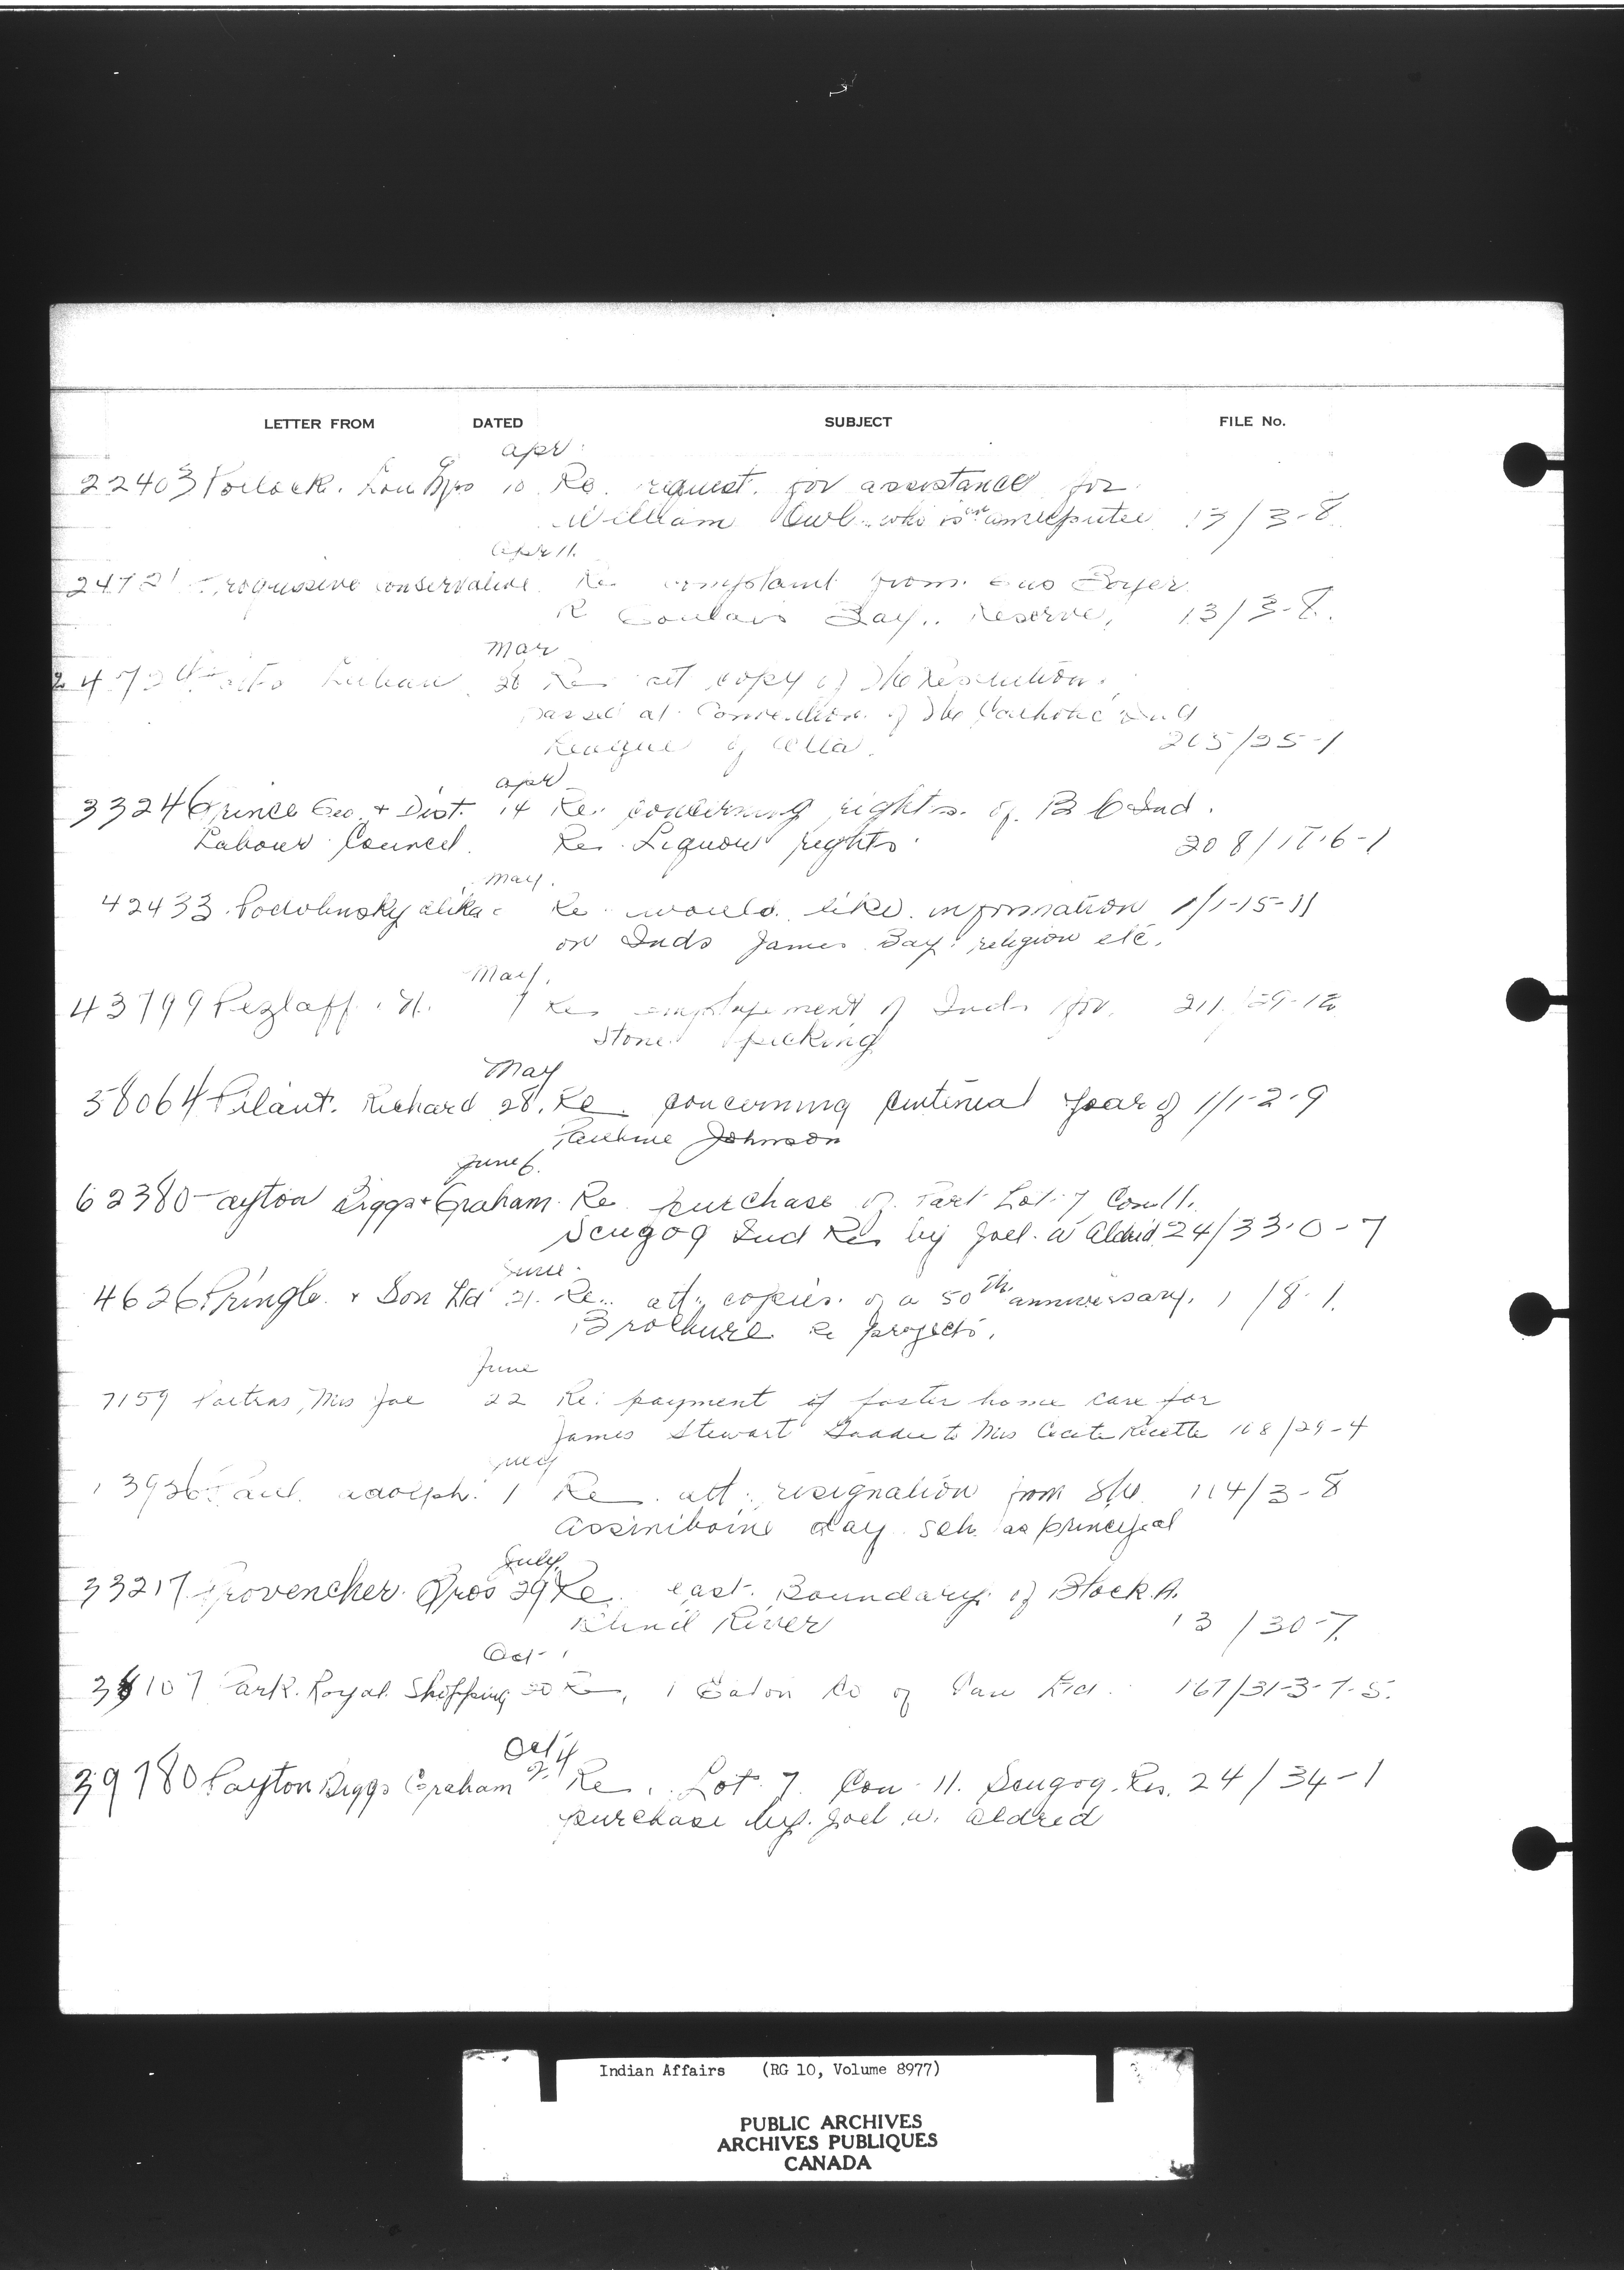 LETTER FROM DATED SUBJECT FILE No.
Apr
22403 10 Re. request. for assistance for
William Owl who is an 13/3-8
Apr 11.
Progressive Conservative Re complaint from
R Goulais Bay.. Reserve, 13/3-8.
Mar
28 Re att copy of the Resolution
passed at Convention of the Catholic Ind
League of Alta.
Apr
33246 Prince Geo. + Dist. 14 Re. concerning rights. of. B C Ind.
Labour Council. Re. Liquor rights 208/18-6-1
May.
42433. Podolinsky Re would like information 1/1-15-11
on Inds James Bay religion etc.
May.
43799 7 Re employement of Inds for. 211/29-12
Stone picking
May
58064 Pilant. Richard 28. Re. concerning Year of 1/1-2-9
Pauline Johnson
June 6.
62380 Payton Biggs + Graham Re purchase of Part Lot 7 Con 11.
Scugog Ind Res by Joel. W Aldred 24/33-0-7
June
4626 Pringle. + Son Ltd 21. Re. att. copies. of a 50th anniversary. 1/8-1.
Brochure Re projects.
June
7159 Poitras, Mrs Joe 22 Re: payment of foster home care for
James Stewart to Mrs 108/29-4
July
Paul. Adolph. 1 Re. att. resignation from
Assiniboine day sch. as principal 114/3-8
July
33217 Provencher. Bros 29 Re. east. Boundary of Block. A.
Blind River 13/30-7.
Oct
Park. Royal. Shopping 20 Re, Eaton Co of Can Ltd. 167/31-3-7-5.
Oct
39780 Payton Biggs Graham Re. Lot 7. Con 11. Scugog. Res. 24/34-1
purchase by. Joel W. Aldred
Indian Affairs (RG 10, Volume 8977)
PUBLIC ARCHIVES
ARCHIVES PUBLIQUES
CANADA